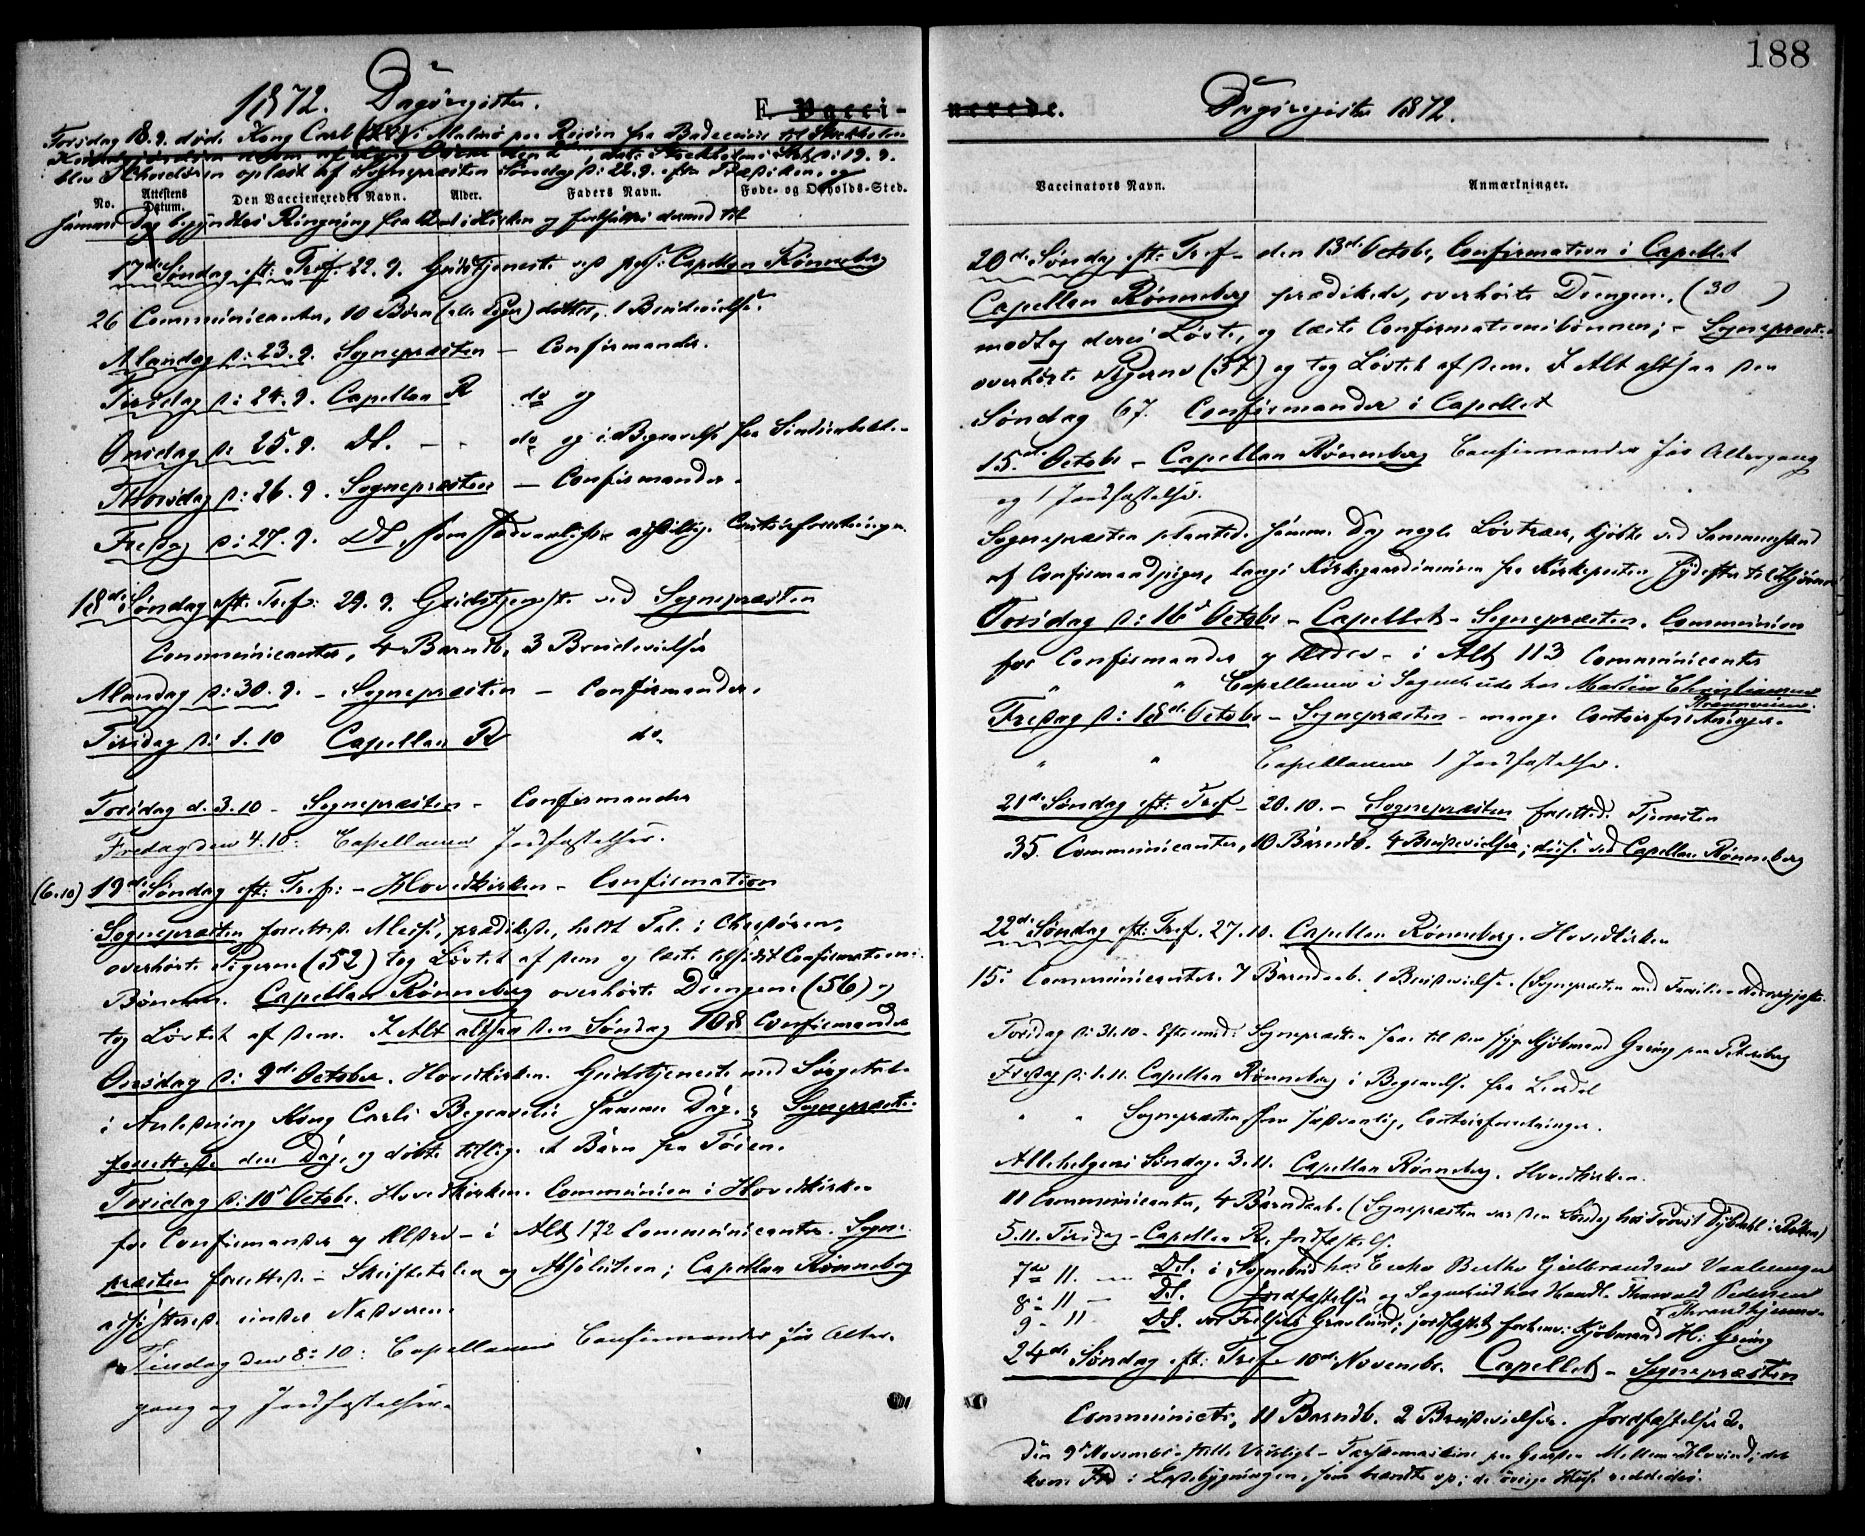 188
1872. Dagsregister.
F. Vacci-
Torsdag 18.9. døde Kong Carl (XV) i Malmø paa Reisen fra til Stockholm
19.9.
blev oplæst af Sognepræsten Søndag d: 22.9. efter Prædiken, og
No. Attestens Datum. Den Vaccieneredes Navn. Alder. Faders Navn. Føde- og Opholds-Sted.
samme Dag begyndtes Ringning fra og dermed til
17de Søndag eft: Tref. 22.9. Gudstjeneste ved pers: Capellan Rønneberg
26 Communicanter, 10 Børn (alle Piger) døbte, 1 Brudevielse.
Mandag d: 23.9. Sognepræsten – Confirmander.
Tirsdag d: 24.9. Capellan R do og
Onsdag d: 25.9. DS. – - do og i Begravelse fra
Thorsdag d: 26.9. Sognepræsten – Confirmander.
Fredag d: 27.9. DS, som sædvanligt adskillige Contoirforretninger.
18de Søndag eft: Tref: 29.9. Gudstjeneste ved Sognepræsten
Communicanter, 4 Barnd., 3 Brudevielser
Mandag d: 30.9. – Sognepræsten – Confirmander.
Tirsdag d: 1.10 Capellan R do
Torsdag d. 3.10 – Sognepræsten – Confirmander
Fredag den 4.10: Capellanen Jordfæstelser.
(6.10) 19de Søndag eft: Tref: – Hovedkirken – Confirmation
Sognepræsten forrettede Messe, prædikede, holdt Tale i Chordøren,
overhørte Pigerne (52) tog Løftet af dem og læste tilsidst Confirmations-
Bønnen. Capellan Rønneberg overhørte Drengene (56) og
tog Løftet af dem. I Alt altsaa den Søndag 108 Confirmander
Onsdag d: 9de October. Hovedkirken. Gudstjeneste med Sørgetale
i Anledning Kong Carls Begravelse samme Dag. Sognepræsten
forrettede den Dag, og døbte tillige et Barn fra Tøien.
Torsdag d: 10de Octobr. Hovedkirken. Communion i Hovedkirken
for Confirmander og Ældre – i Alt 172 Communicanter. Sogne-
præsten forrettede – Skriftetalen og Absolution; Capellan Rønneberg
assisterede under Nadveren.
Tirsdag den 8: 10: Capellanen Confirmander før Alter-
gang og Jordfæstelser.
nerede.
Dagsregister 1872.
Vaccinators Navn. Anmærkninger.
20de Søndag eft: Tref – den 13de Octobr, Confirmation i Capellet
Capellan Rønneberg prædikede, overhørte Drengene, (30 )
modtog deres Løfte, og læste Confirmationsbønnen; – Sognepræsten
overhørte Pigerne (37) og tog Løftet af dem. I Alt altsaa den
Søndag 67. Confirmander i Capellet
15de Octobr – Capellan Rønneberg Confirmander før Altergang
og 1 Jordfæstelse.
Sognepræsten plantede samme Dag nogle Løvtræer, kjøbte ved Sammenskud
af Confirmandpiger, langs Kirkegaardsmuren fra Kirkeporten til Hjørnet
Torsdag d: 16de Octobr – Capellet – Sognepræsten. Communion
for Confirmander og Ældre – i Alt 113 Communicanter
" " Capellanen i Sognebud hos Christiansen
Fredag d: 18de Octobr – Sognepræsten – mange Contoirforretninger.
" " Capellanen 1 Jordfæstelse.
21de Søndag eft: Tref – 20.10. – Sognepræsten forrettede Tjenesten
35 Communicanter, 10 Barnd. 4 Brudevielser; disse ved Capellan Rønneberg
22de Søndag eft: Tref. 27.10. Capellan Rønneberg. Hovedkirken
15 Communicanter. 7 Barndaab. 1 Brudevielse. (Sognepræsten med Familie
Torsdag d: 31.10 – Eftermid: Sognepræsten til den syge Kjøbmand Grønig paa
Fredag d: 1.11. Capellan Rønneberg i Begravelse fra
" Sognepræsten som sædvanlig, Contoirforretninger.
Allehelgens Søndag. 3.11. Capellan Rønneberg. Hovedkirken.
11 Communicanter, 4 Barndaab. (Sognepræsten var den Søndag hos Provst i )
5.11. Tirsdag – Capellan R. Jordfæstelse.
7de 11. – DS. i Sognebud hos Enke Berthe Gulbrandsen Vaalerengen
8: 11 – DS. Jordfæstelse og Sognebud hos Handl. Thorvald Pedersen
9 – 11 DS. Gravlund; jordfæstet forhenv: Kjøbmand H:
24de Søndag eft: Tref – 10de Novembr. Capellet – Sognepræsten
Communict, 11 Barnd. 2 Brudevielser. Jordfæstelser 2.
Den 9de Novembr. paa Mellem-Hovind; der
kom Ild i Ladebygningen, som brændte op; de øvrige Huse reddedes.